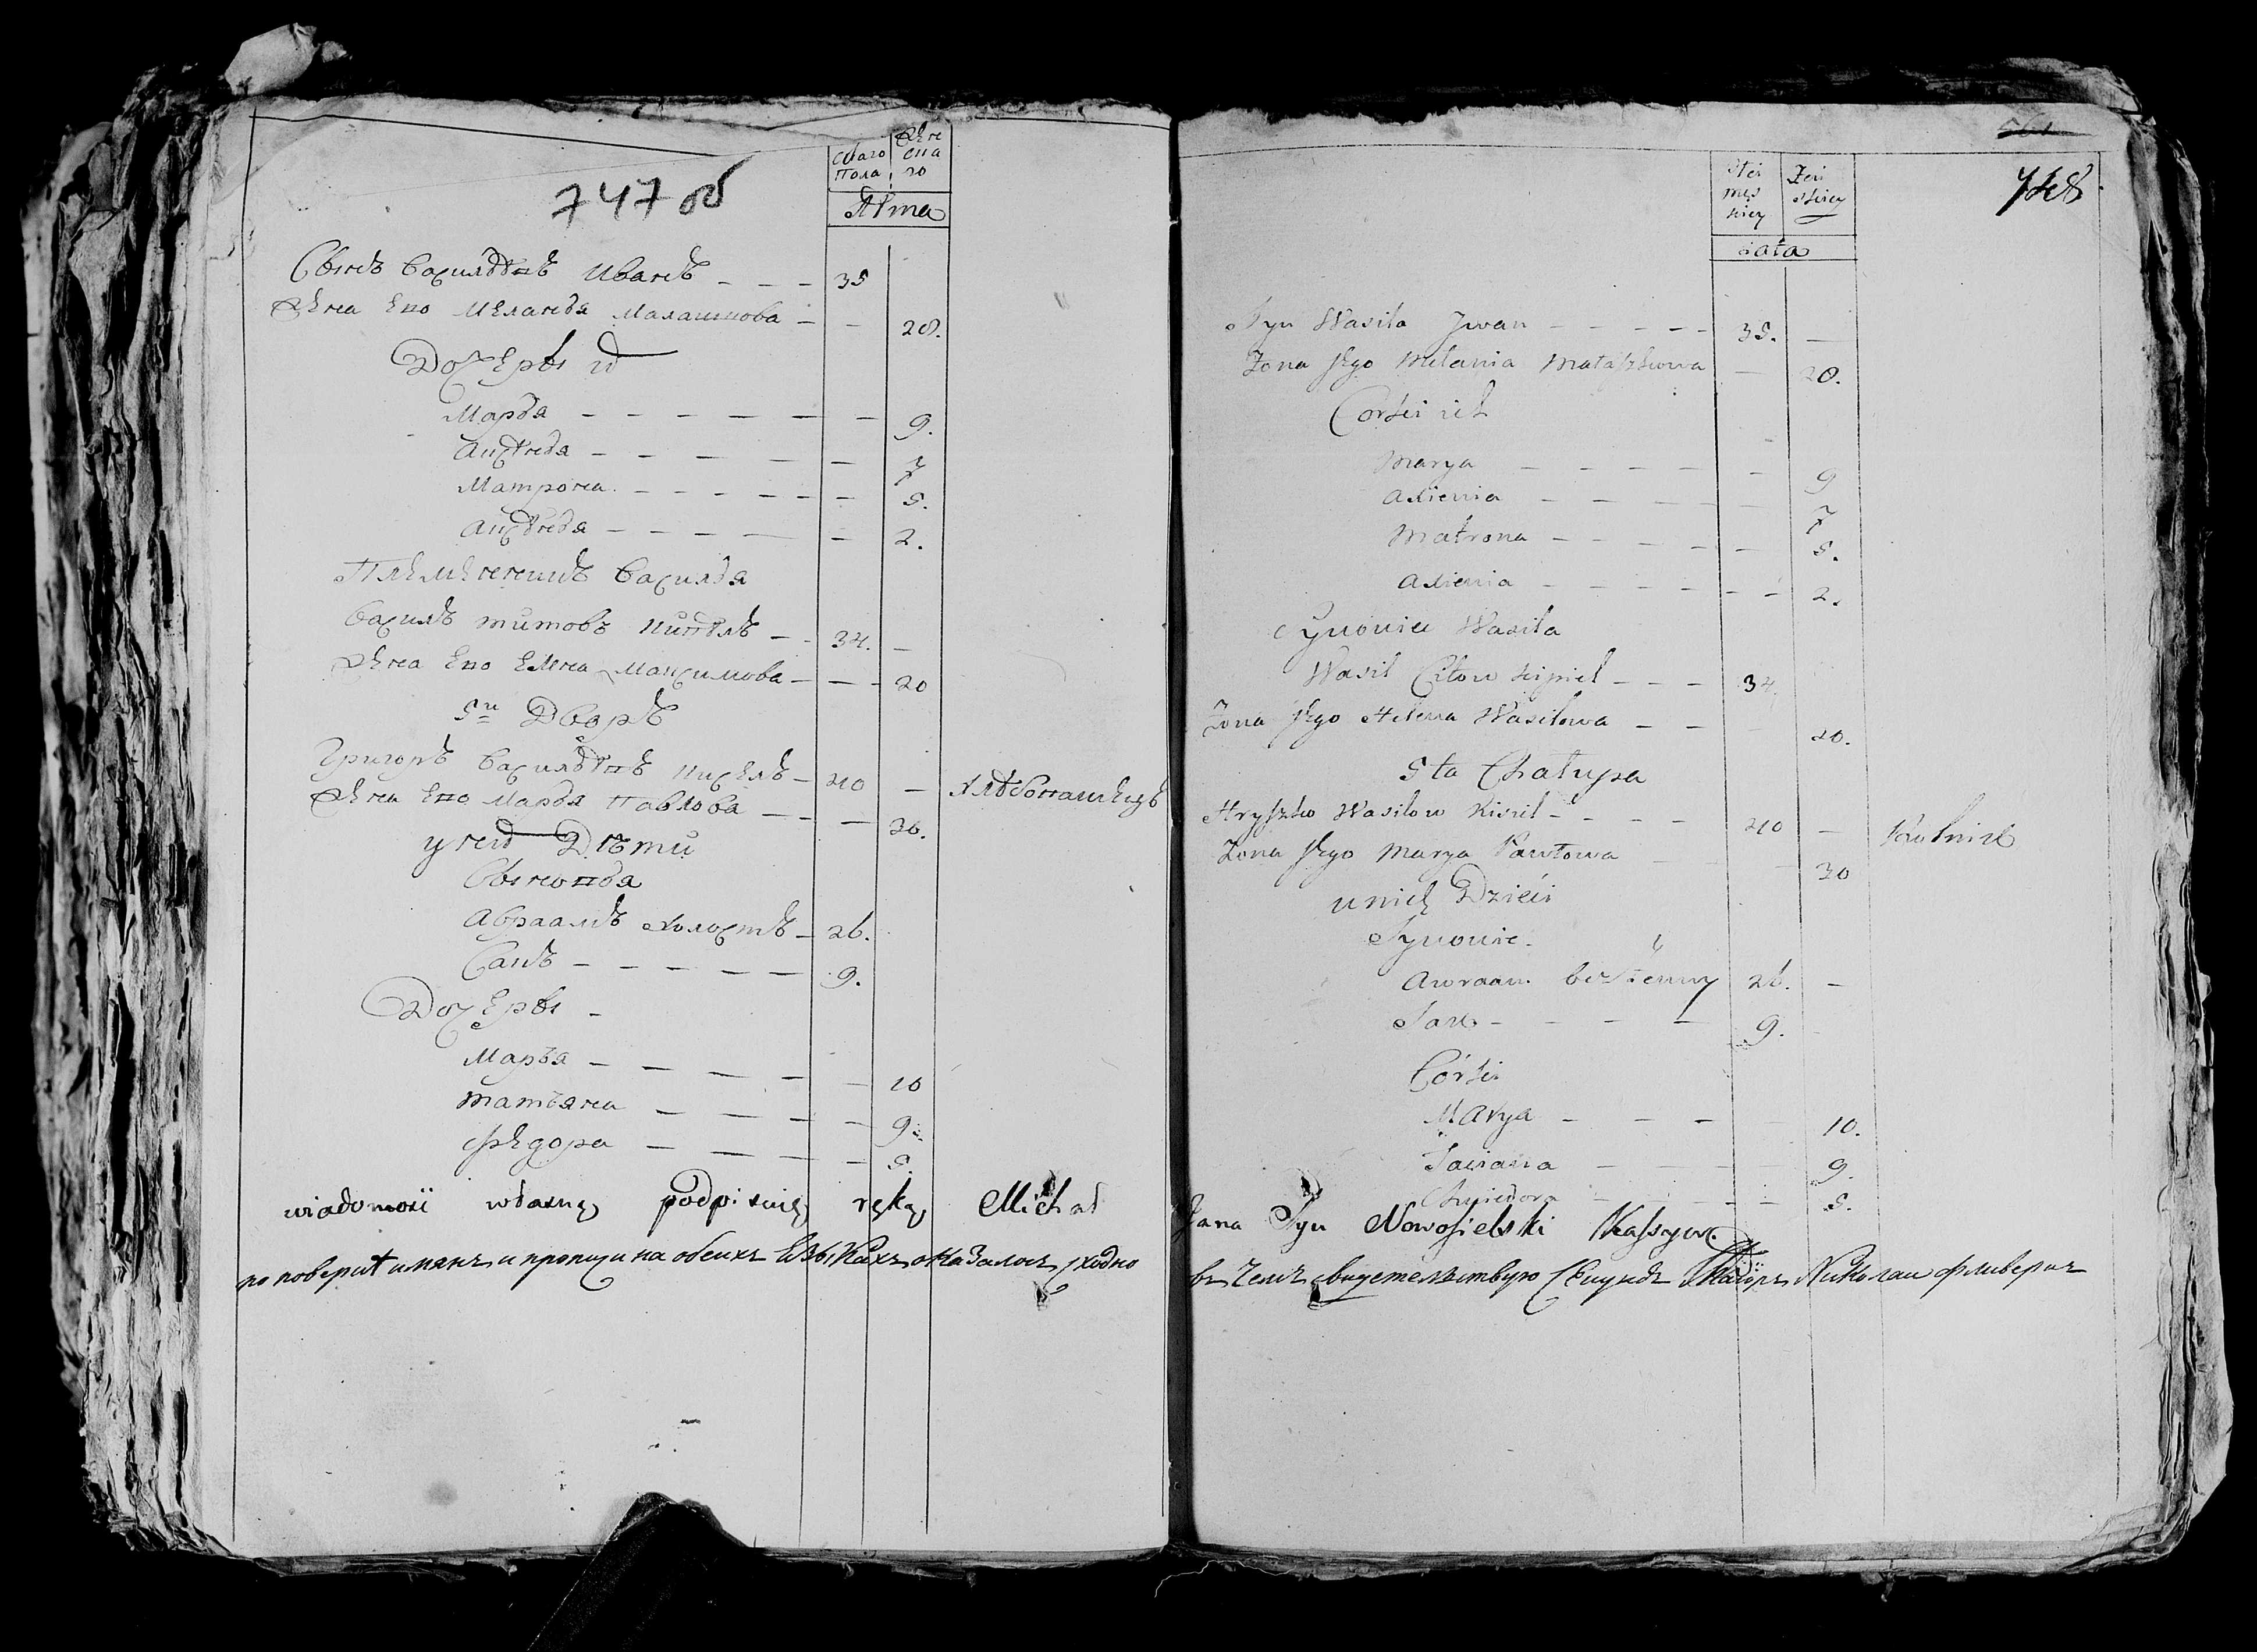 747 об
Сваго Пола
Женскаго
Лѣта
Сынъ Василѣвъ Иванъ - - - 35
Жена Его Меланья Малашкова - - 28.
Дочеры их
Марья - - - - - - 9.
Аксѣнья - - - - - 7
Матрона - - - - - - 5.
Аксѣнья - - - - - 2.
Племенникъ Василья
Василь Титовъ - - 34. -
Жена Его Елена Максимова - - - 20
5й Дворъ
Григоръ Василѣвъ Киселъ - 40 - Хлѣбопашецъ
Жена Его Марья Павлова - - - 30.
у них Дѣти
Сыновья
Абраамъ Холостъ - 26.
Сакъ - - - - - - 9.
Дочеры -
Марья - - - - - 10
Татьяна - - - - - 9.
Федора - - - - - 5.
wiadomosci własną podpisuię ręką Michał
по поверки и на обеихъ Языкахъ оказалось сходно
748
Płci męskiey
Żeńskiey
Lata
Syn Wasila Jwan - - - - - 35. -
Żona Jego Melania Małaszkowa - 28.
Corki ich
Marya - - - - - 9
Axienia - - - - - 7
Matrona - - - - - 5.
Axienia - - - - - - 2.
Synowiec Wasila
Wasil Citow - - - 34.
Żona Jego Helena Wasilowa - - 20.
5ta Chałupa
Hryszko Wasilow Kisiel - - - - 40 - Rolnik
Żona Jego Marya Pawłowa - - 30
u nich Dzieci
Synowie.
Awraam bezżenny 26. -
Sak - - - - 9. -
Córki
Marya - - - - 10.
Taciana - - - 9.
Chwiedora - - - 5.
Jana Syn Nowosielski
въ чемъ свидетельствую Секундъ Маiоръ Николаи